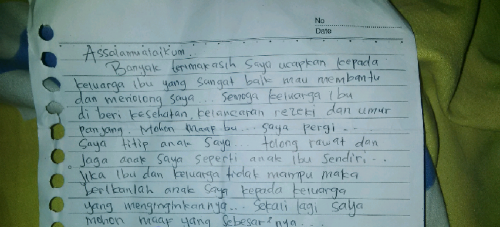 No
Date
Assalamualaikum.
Banyak terimakasih saya ucapkan kepada
keluarga ibu yang sangat baik mau membantu
dan menolong saya... semoga keluarga ibu
di beri kesehatan, kelancaran rezeki dan umur
panjang. Mohon maaf bu... saya pergi...
Saya titip anak saya... tolong rawat dan
jaga anak saya seperti anak ibu sendiri...
Jika ibu dan keluarga tidak mampu maka
berikanlah anak saya kepada keluarga
yang menginginkannya... Sekali lagi saya
mohon maaf yang sebesar"nya...